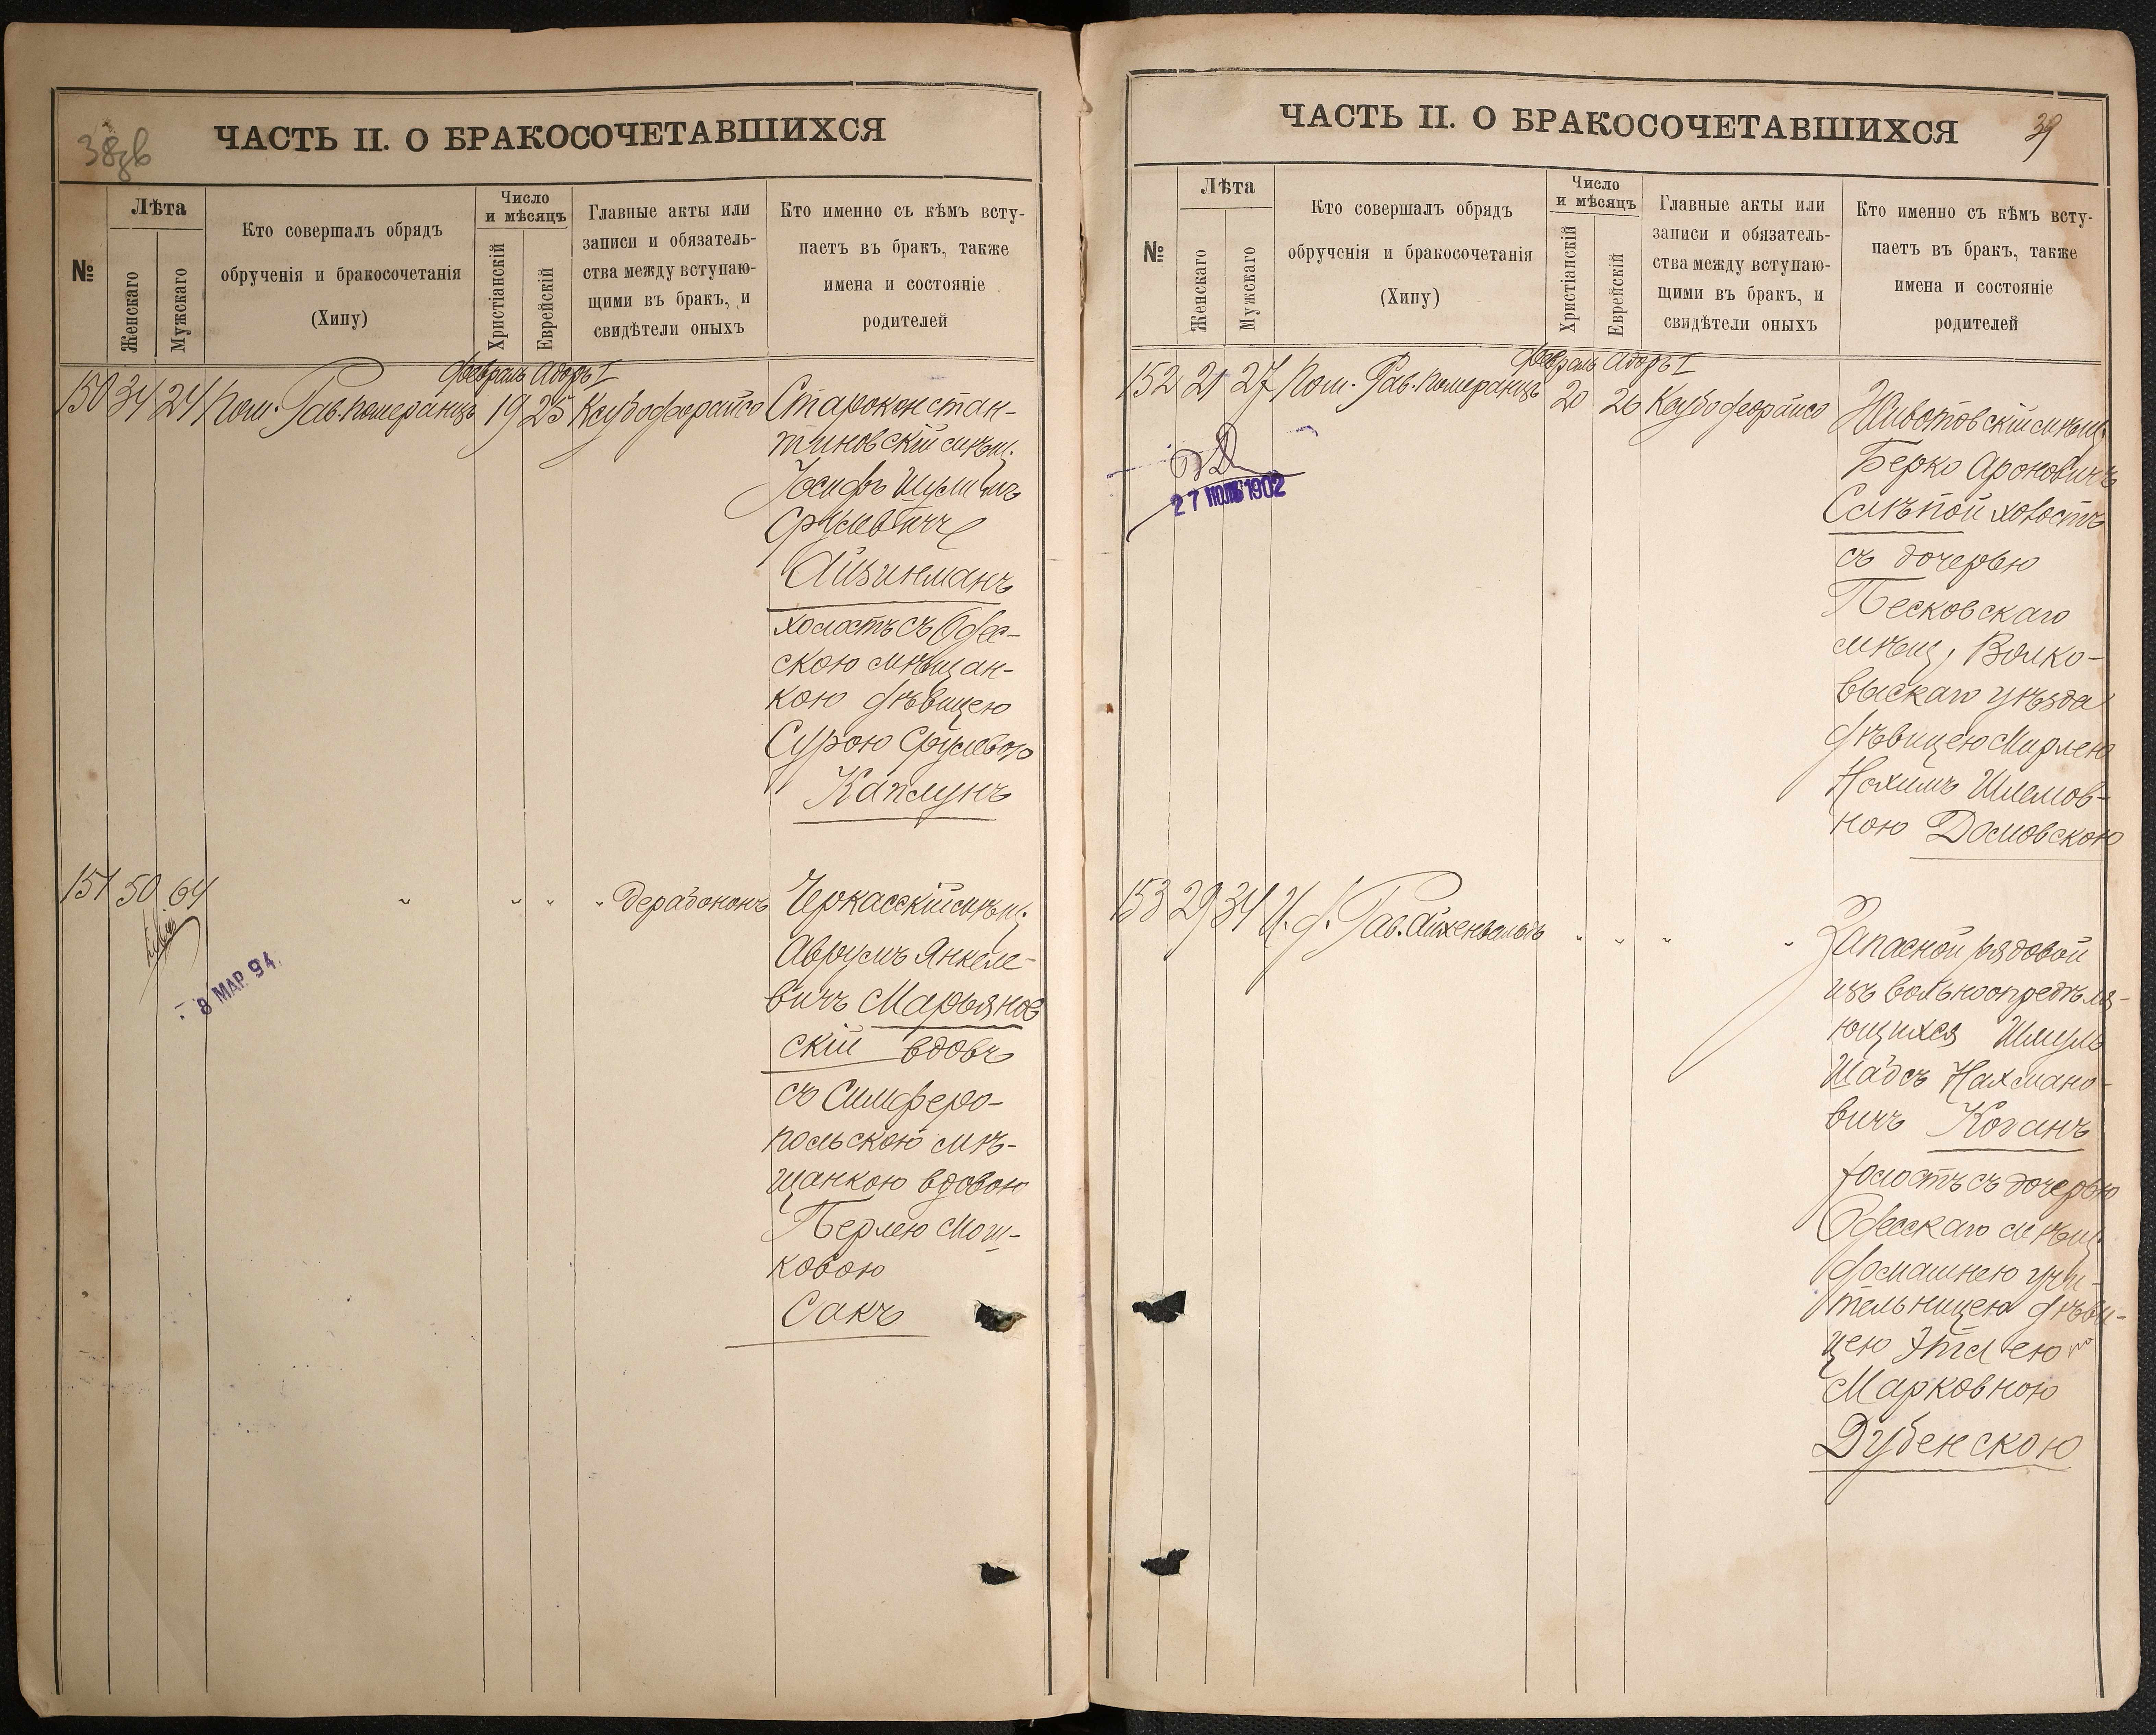 38 зв
ЧАСТЬ II. О БРАКОСОЧЕТАВШИХСЯ
№
Лѣта
Женскаго
Мужскаго
Кто совершалъ обрядъ
обрученія и бракосочетанія
(Хипу)
Число
и мѣсяцъ
Христіанскій
Еврейскій
Главные акты или
записи и обязатель-
ства между вступаю-
щими въ бракъ, и
свидѣтели оныхъ
Кто именно съ кѣмъ всту-
паетъ въ бракъ, также
имена и состояніе
родителей
Февраль Адоръ I
150 34 24 Пом. Рав. Померанцъ 19 25 Ксубофърайсо
Староконстан-
тиновскій мѣщ.
Іосифъ
Срулевичъ
Айзинманъ
холостъ съ Одес-
скою мѣщан-
кою дѣвицею
Сурою Срулевою
Каплунъ
151 50 64 " " " " Дерабононъ
8 МАР. 94.
Черкасскій мѣщ.
Аврумъ Янкеле-
вичъ Марьянов
скій вдовъ
съ Симферо-
польскою мѣ-
щанкою вдовою
Перлею Мош-
ковою
Сакъ
ЧАСТЬ II. О БРАКОСОЧЕТАВШИХСЯ
39
№
Лѣта
Женскаго
Мужскаго
Кто совершалъ обрядъ
обрученія и бракосочетанія
(Хипу)
Число
и мѣсяцъ
Христіанскій
Еврейскій
Главные акты или
записи и обязатель-
ства между вступаю-
щими въ бракъ, и
свидѣтели оныхъ
Кто именно съ кѣмъ всту-
паетъ въ бракъ, также
имена и состояніе
родителей
Февраль Адоръ I
152 21 27 Пом. Рав. Померанцъ 20 26 Ксубофърайсо
27 ІЮЛЯ 1902
Животовскій мѣщ.
Берко Ароновичъ
Слѣпой холостъ
съ дочерью
Песковскаго
мѣщ, Волко-
выскаго уѣзда
дѣвицею Мирлею
Нахимъ Шлемов-
ною
153 29 34 И. д. Рав. Айхенвальдъ " " " "
Запасной рядовой
изъ вольноопредѣля-
ющихся Шмуль
Шабсъ Нахмано-
вичъ Коганъ
холостъ съ дочерью
Одесскаго мѣщ.
домашнею учи-
тельницею дѣви-
цею Этлею
Марковною
Дубенскою